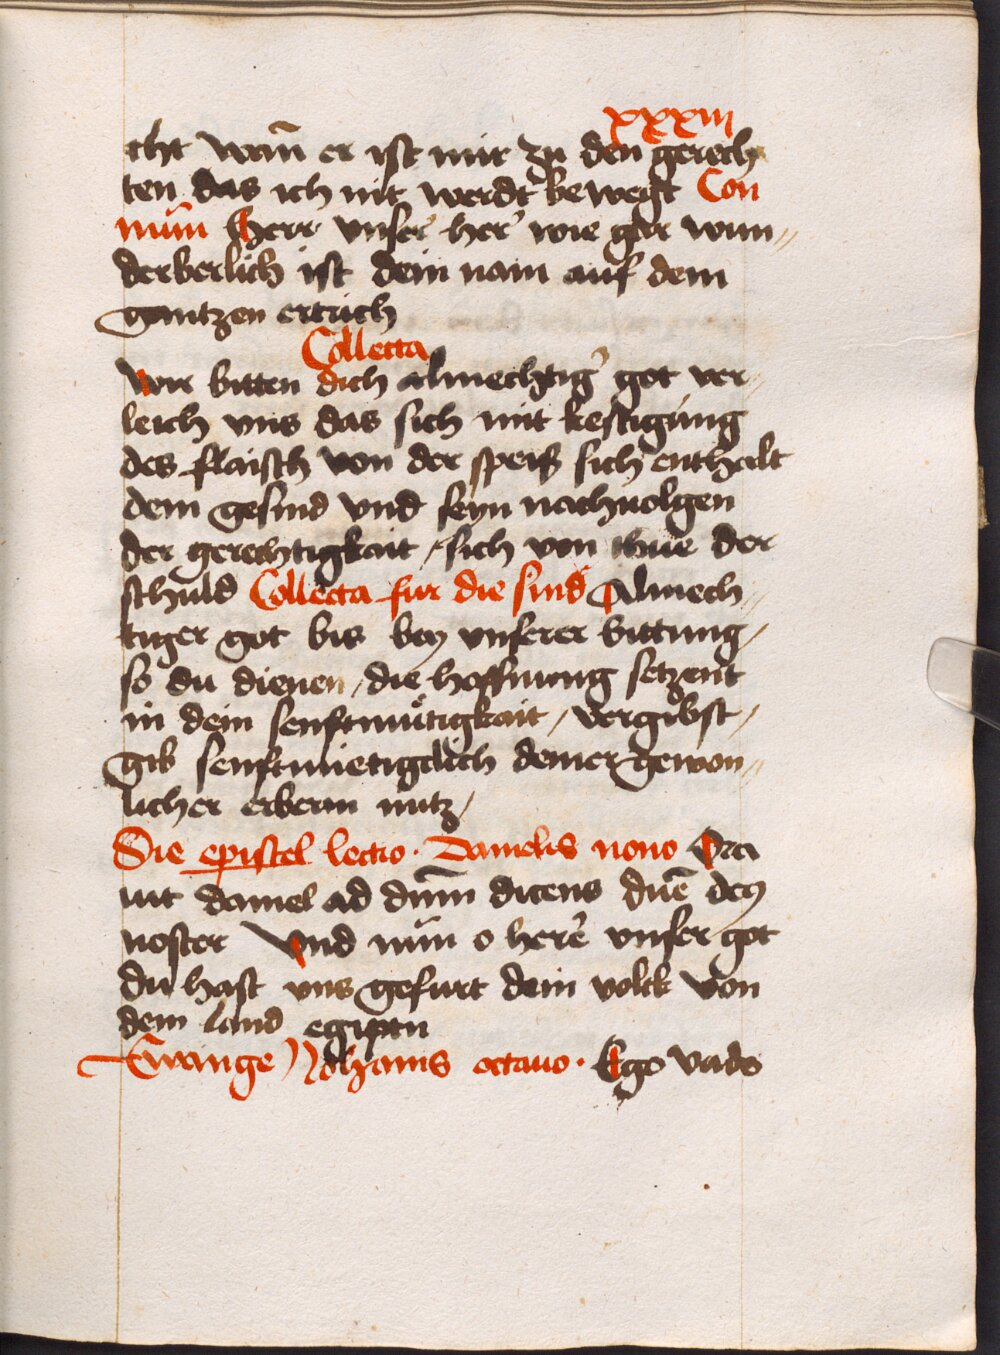 xxxiii
cht wañ er ist mir zu den gerech
ten das ich nit werdt bewegt Con
mūm Herr unser her' wie gar wun〃
derberlich ist dein nam auf dem
gantzen ertrich
Collecta
Wir bitten dich almechtig' got ver〃
leich uns das sich mit kestigung
des flaisch von der speiß sich enthalt
dem gesind und seyn nachuolgen
der gerechtigkait / sich von thue der
schuld Collecta fur die sind Almech〃
tiger got bis bey unserer bittung /
so du dienen / die hoffnung setzent
in dein senftmütigkait / vergibst /
gib senftmietigclich deiner gewon〃
licher erberm nutz /
Die epistel lectio · Danielis nono Ora
uit daniel ad dñm dicens dñe deus
noster Und nun o herē unser got
du hast uns gefurt dein volck von
dem land egiptn
Ewange Johanis octauo · Ego vado